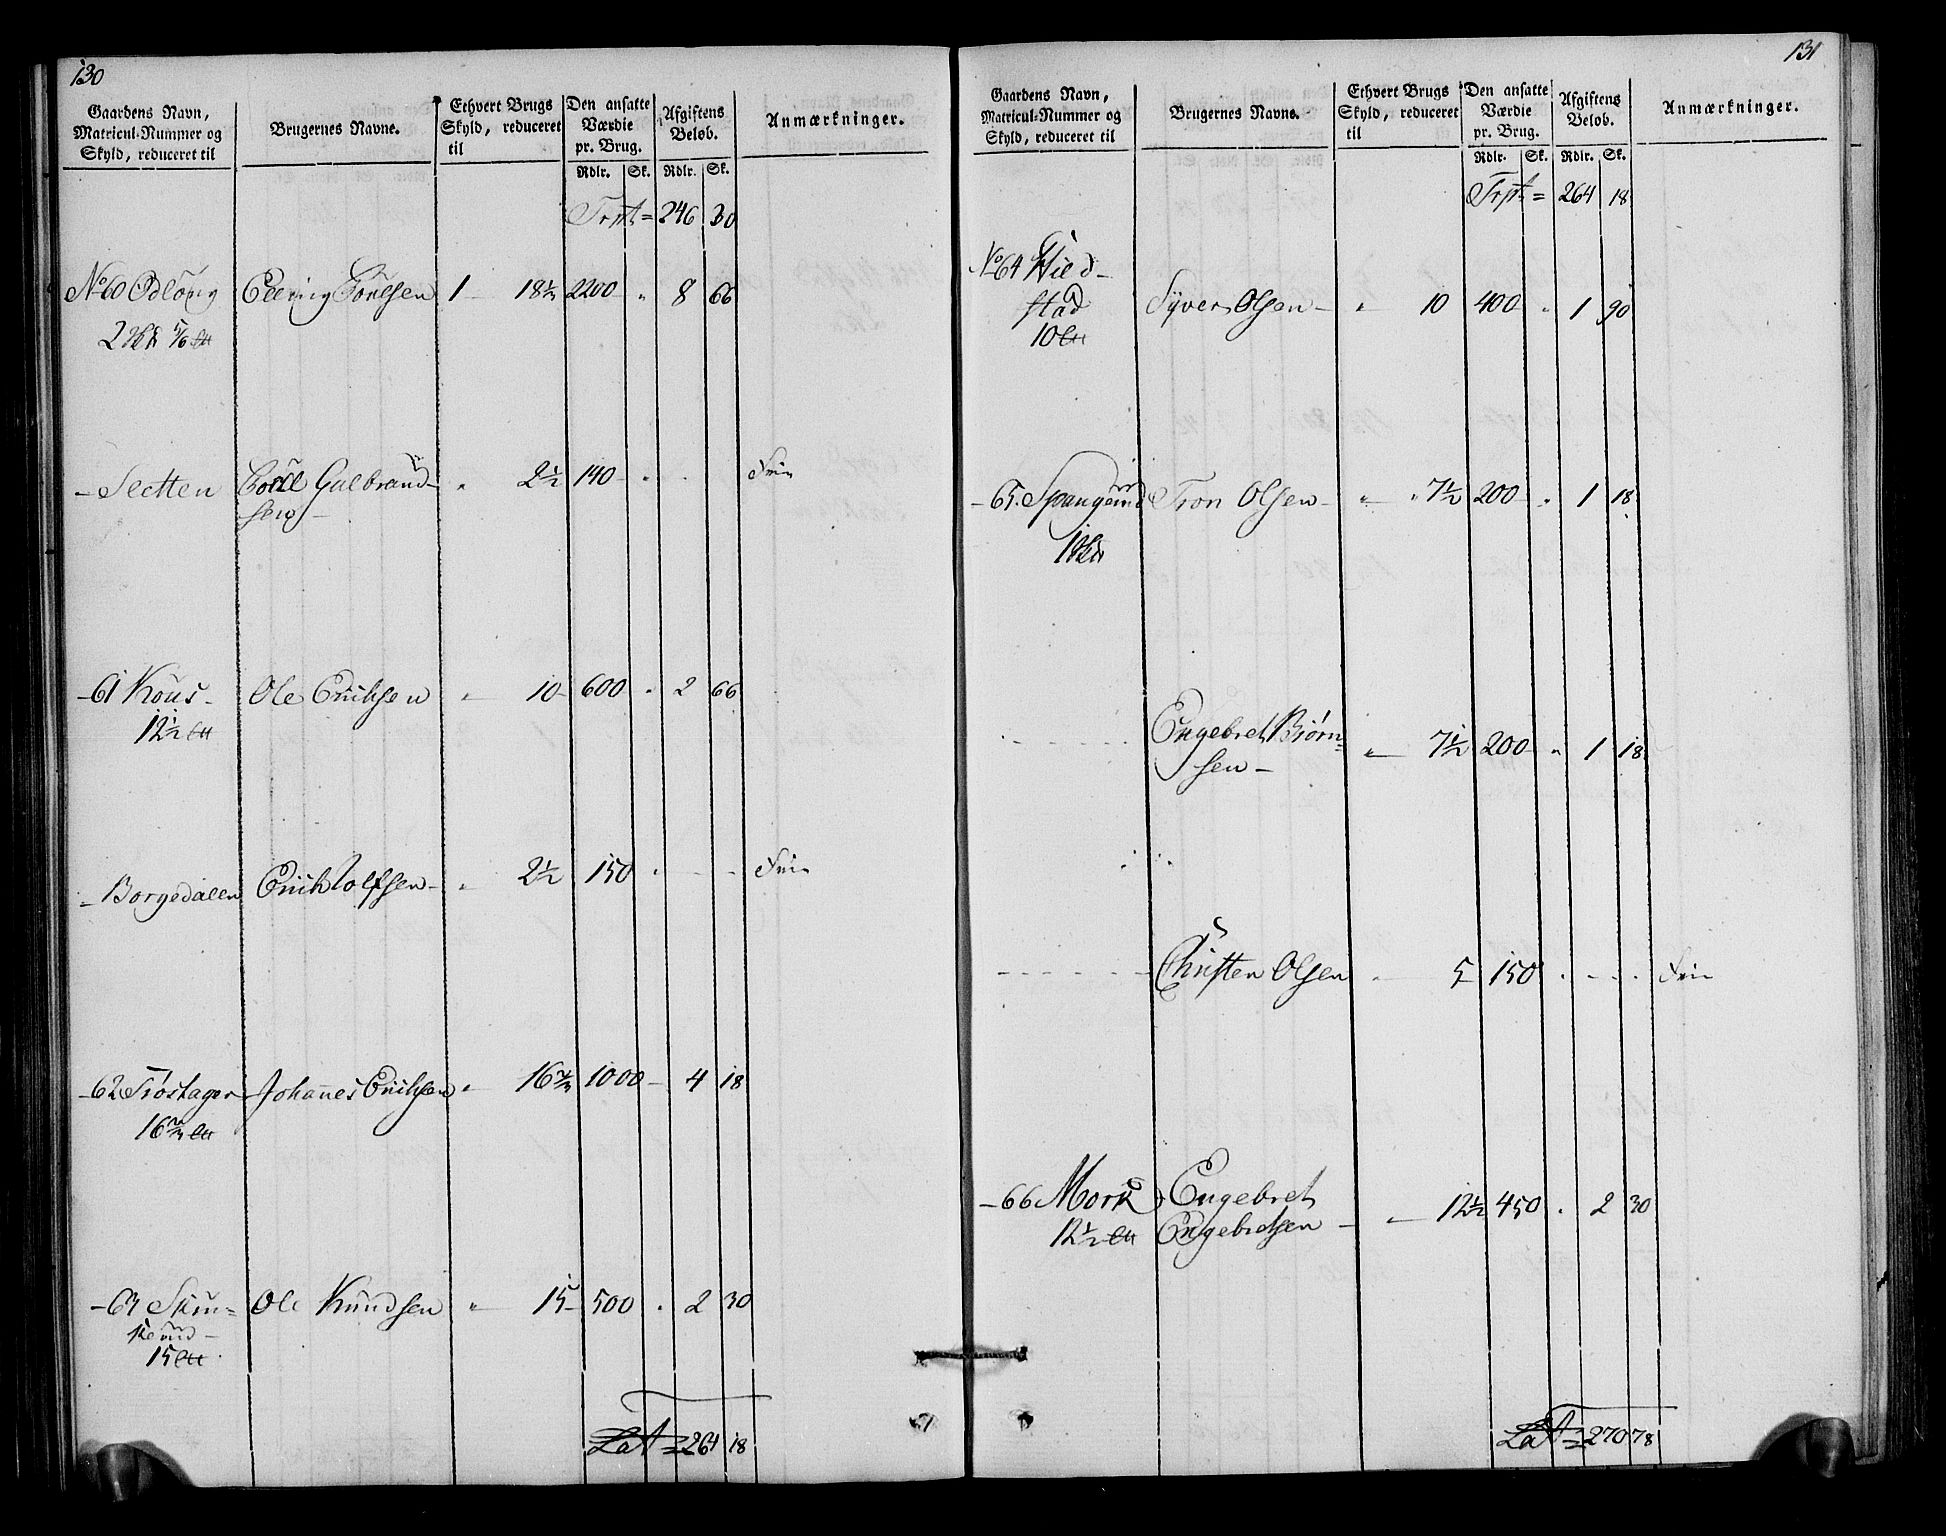 130
Gaardens Navn, Matricul-Nummer og Skyld, reduceret til
Brugernes Navne.
Ethvert Brugs Skyld, reduceret til
Den ansatte Værdie pr. Brug.
Afgiftens Beløb.
Anmærkninger.
Rdlr. Sk. Rdlr. Sk.
Trpt = 246 30
No 60 Odlong Elling 1 - 18⅓ 2200 " 8 66
2 5/6
- Sletten Gulbrand- " 2½ 140 " . Frie
sen -
- 61 Kous - Ole Erichsen " 10 600 " 2 66
12½
- Borgedalen Erich Tolfsen - " 2½ 150 " - - Frie
- 62 Trøstager Johannes Erichsen " 16⅔ 1000 - 4 18
16⅔
- 63 Skin= Ole Knudsen " 15 500 " 2 30
15
Lat = 264 18
131
Gaardens Navn, Matricul-Nummer og Skyld, reduceret til
Brugernes Navne.
Ethvert Brugs Skyld, reduceret til
Den ansatte Værdie pr. Brug.
Afgiftens Beløb.
Anmærkninger.
Rdlr. Sk. Rdlr. Sk.
Trpt = 264 18
No 64 Hield-
stad Syver Olsen - " 10 400 " 1 90
10
- 65. Tron Olsen - " 7½ 200 - " 1 18
1
Engebret Biørn=
sen - " 7½ 200 " 1 18
Christen Olsen " 5 150 . - - Frie
- 66 Mork Engebret
12½ Engebretsen - " 12½ 450 . 2 30
Lat = 270 78